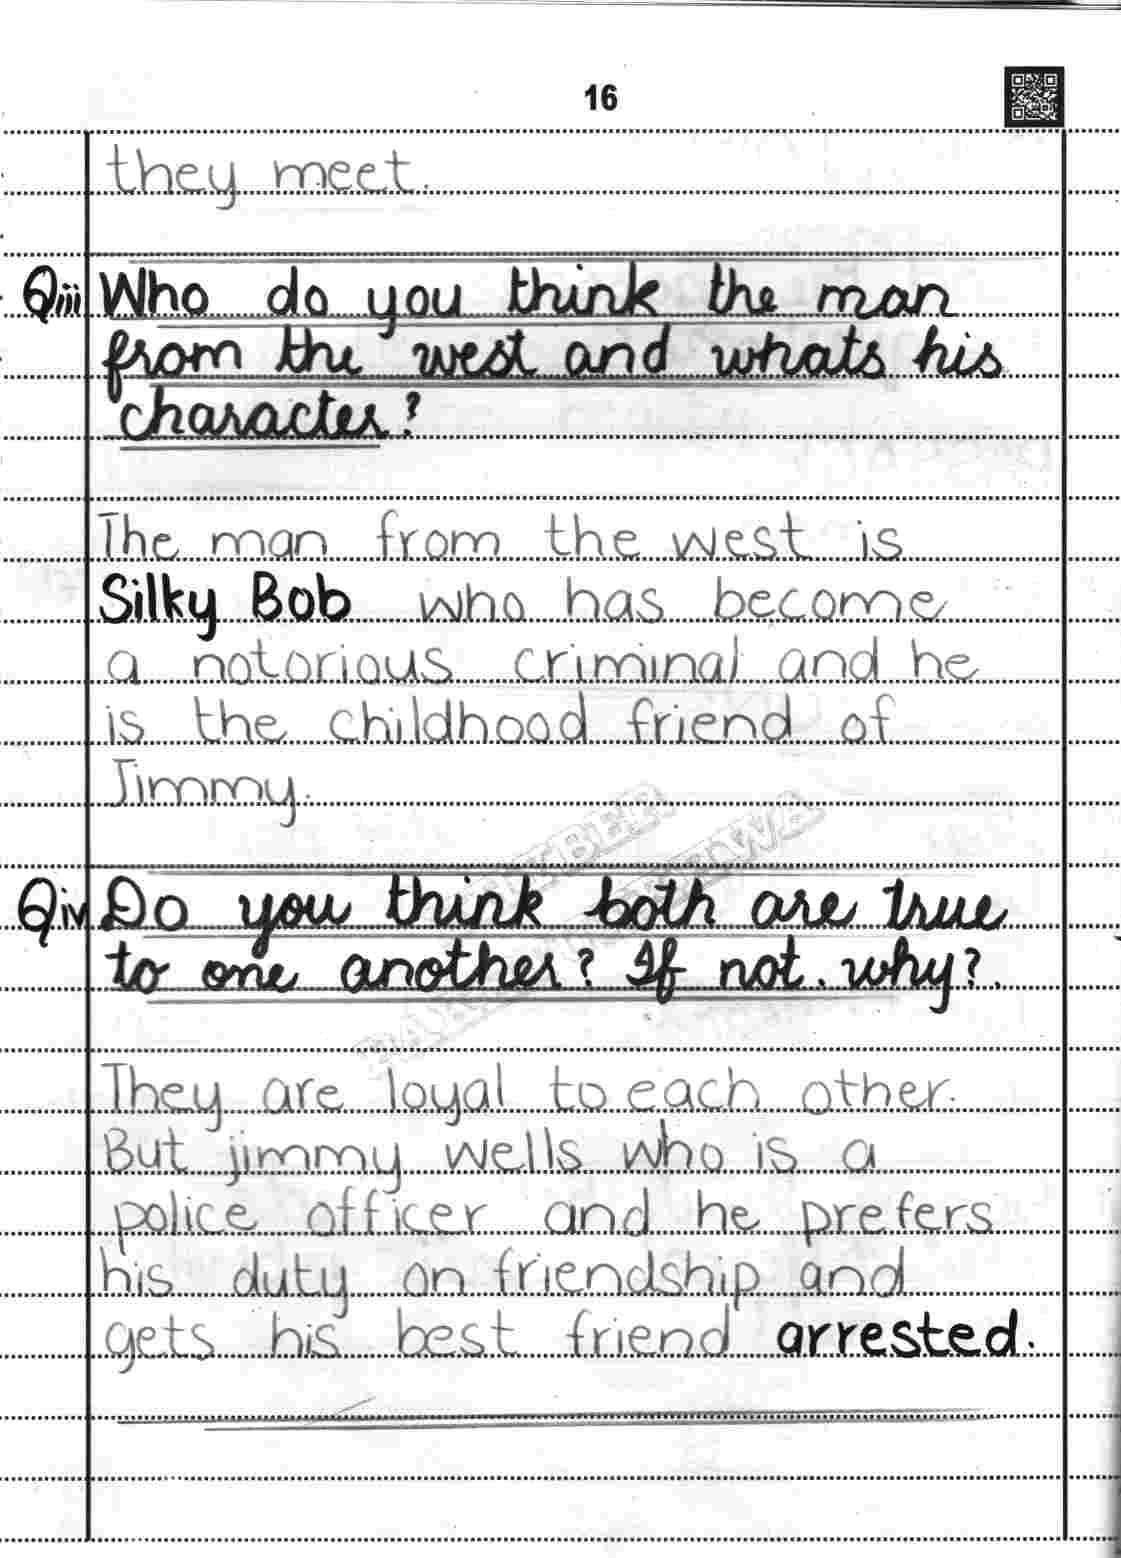 16
they meet.
Qiii Who do you think the man
from the west and whats his
character?
The man from the west is
Silky Bob who has become
a notorious criminal and he
is the childhood friend of
Jimmy.
Qiv Do you think both are true
to one another? If not. why?.
They are loyal to each other.
But jimmy wells who is a
police officer and he prefers
his duty on friendship and
gets his best friend arrested.